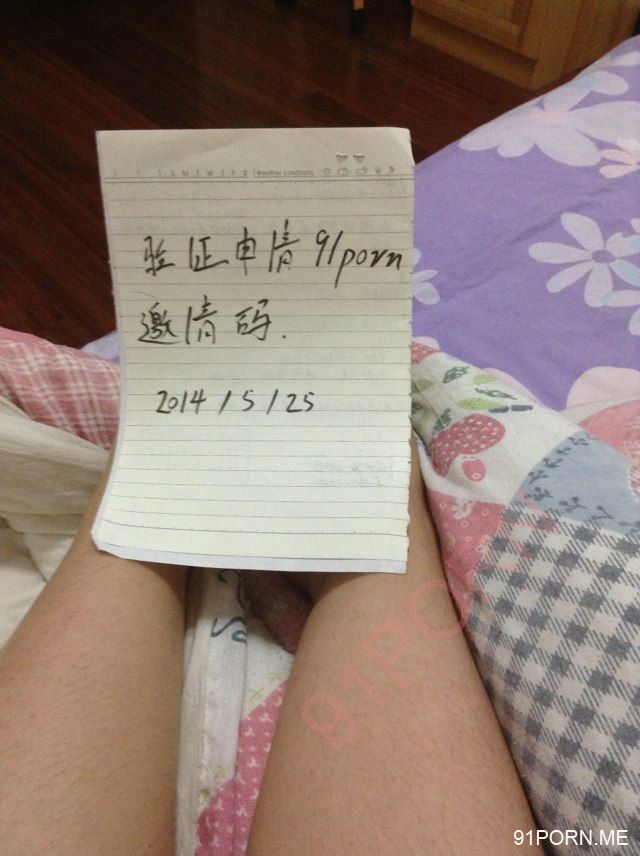 S M T W T F S Weather conditions
验证申请91porn
邀请码.
2014/5/25
91PORN
91PORN.ME